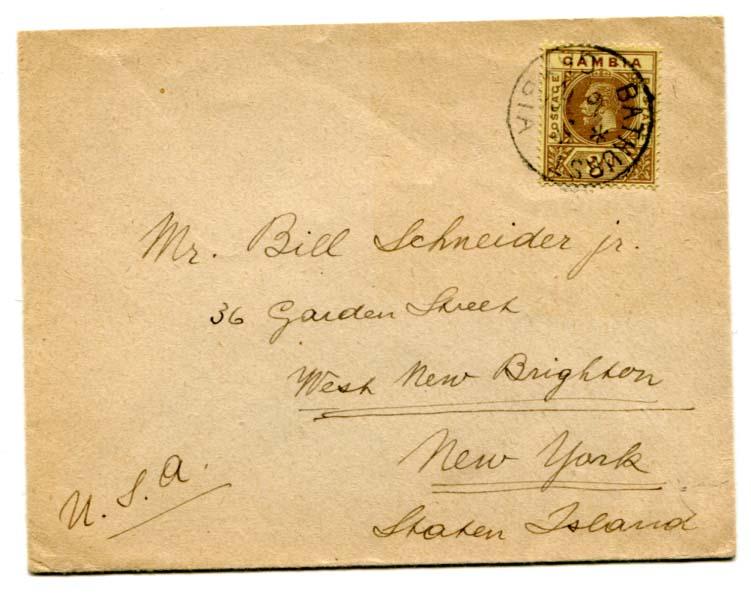 GAMBIA
POSTAGE
BATHURST
GAMBIA
Mr. Bill Schneider jr.
36 Garden Street
West New Brighton
New York
Staten Island
U. S. A.